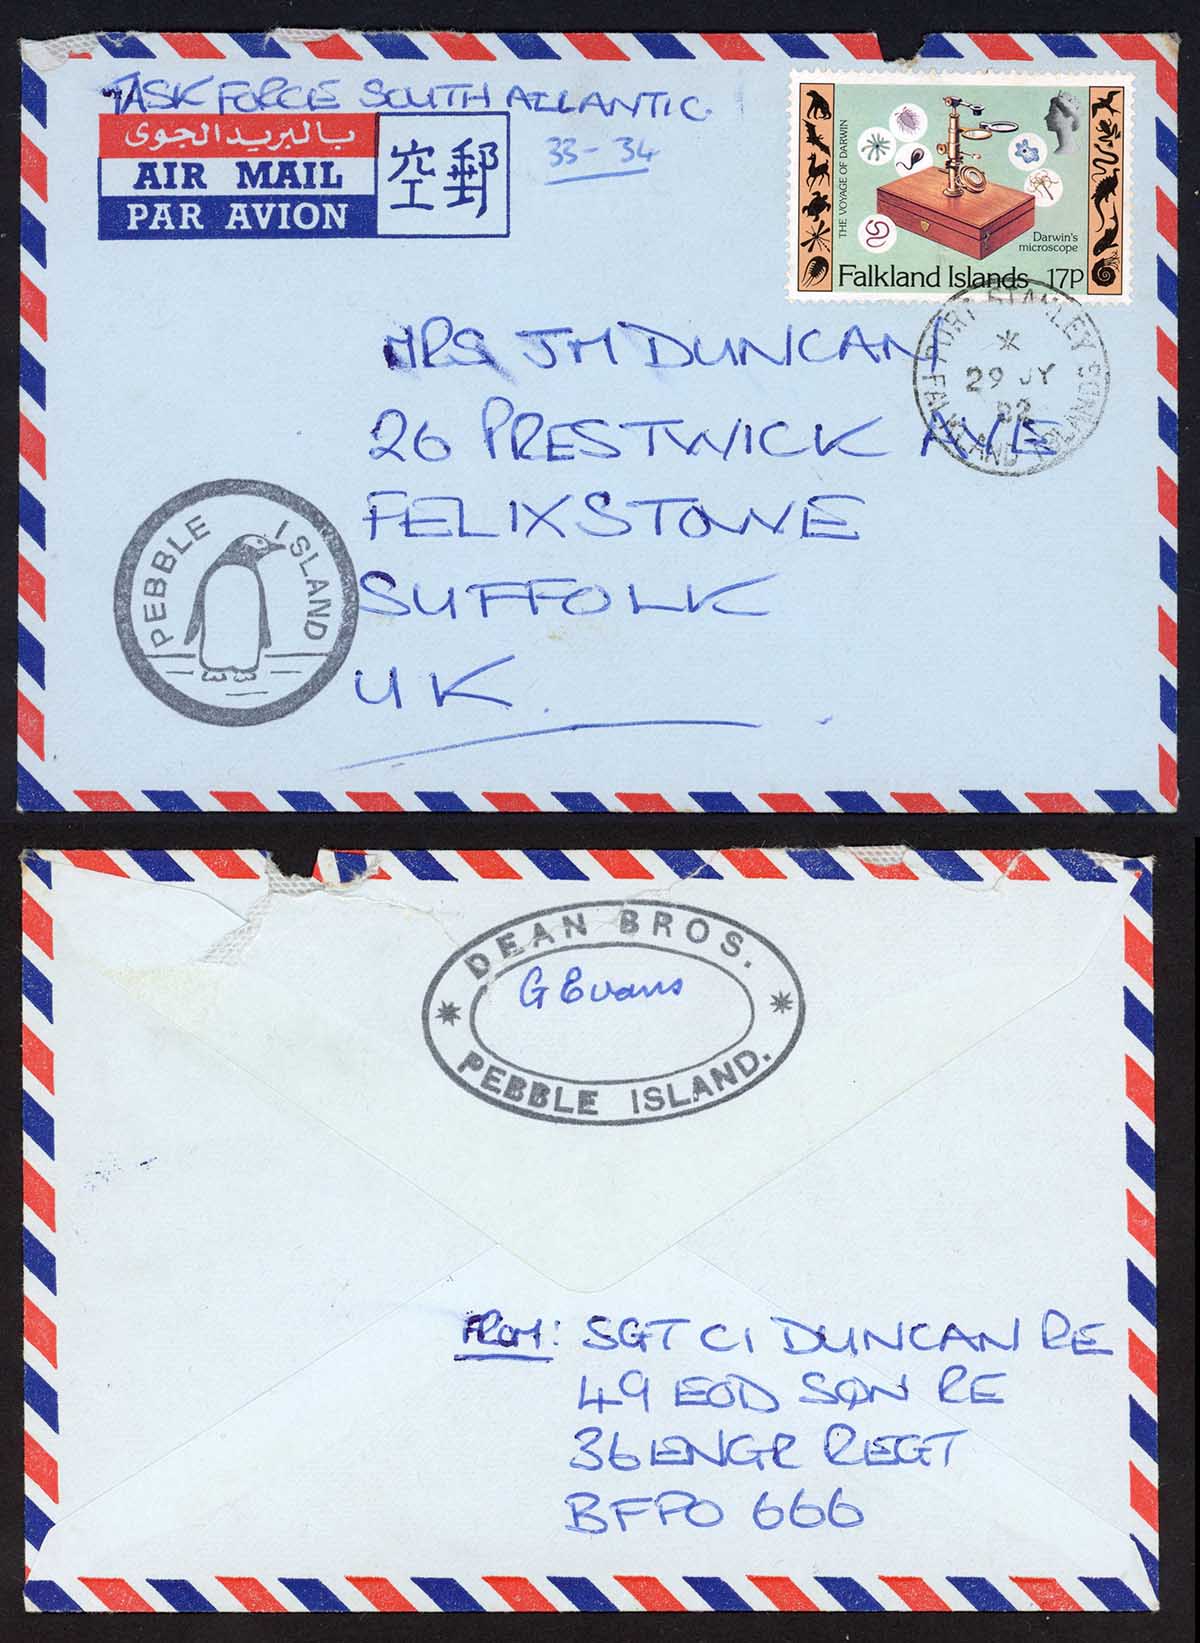 TASK FORCE SOUTH ATLANTIC
33-34
بالبريد الجوى
AIR MAIL
PAR AVION
空郵
THE VOYAGE OF DARWIN
Darwin's
microscope
Falkland Islands 17P
PORT STANLEY
*
29 JY
82
FALKLAND ISLANDS
MRS JM DUNCAN
26 PRESTWICK AVE
FELIXSTOWE
SUFFOLK
UK.
PEBBLE ISLAND
DEAN BROS.
G Evans
PEBBLE ISLAND.
FROM: SGT CI DUNCAN RE
49 EOD SQN RE
36 ENGR REGT
BFPO 666